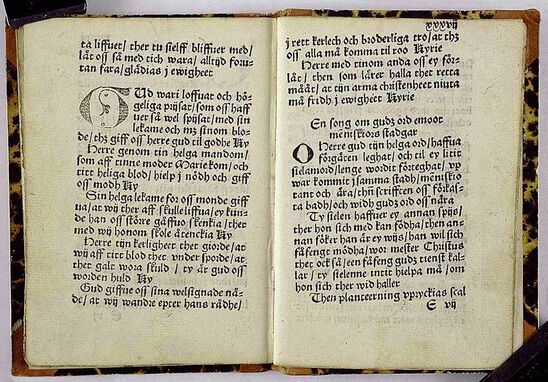 ta liffuet/ ther tu sielff bliffuer med/
låt oss så med tich wara/ alltijd foru-
tan fara/ glädias j ewigheet
GUd wari loffuat och hö-
geliga prijsat/ som oss haff
uer så wel spijsat/ med sin
lekame och mz sinom blo-
de/ thz giff oss herre gud til godhe Ky
Herre genom tin helga mandom/
som aff tinne moder Marie kom/ och
titt heliga blod/ hielp j nödh och giff
oss modh Ky
Sin helga lekame for oss monde giff
ua/ at wij ther aff skulle liffua/ ey kun/
de han oss större gåffuo skenkia/ thet
med wij honom skole åtenckia Ky
Herre tijn kerlighet thet giorde/ at
wij aff titt blod thet vnder sporde/ at
thet galt wora skuld/ ty är gud oss
worden huld Ky
Gud giffue oss sina welsignade nå-
de/ at wij wandre epter hans rådhe/
xxxvij
j rett kerlech och broderliga tro/ at thz
oss alla må komma til roo Kyrie
Herre med tinom anda oss ey för-
låt/ then som lärer halla thet retta
mått/ at tijn arma christenheet niuta
må fridh j ewigheet Kyrie
En song om gudz ord emoot
menniskiors stadgar
O Herre gud tijn helga ord/ haffua
förgåten leghat/ och til ey litt
sielamord/ lenge wordit förteghat/ vp
war kommit j samma stadh/ menniskio
tant och ära/ thin scrifften oss förkas-
ta badh/ och widh gudz ord oss nära
Ty sielen haffuer ey annan spijs/
ther hon sich med kan födha/ then an-
nan söker han är ey wijs/ han wil sich
fåfengt mödha/ wor mester Christus
thet ock så/ een fåfeng gudz tienst kal-
lar/ ty sielenne intit hielpa må/ om
hon sich ther wid haller
Then planteerning vpryckias scal
E vij